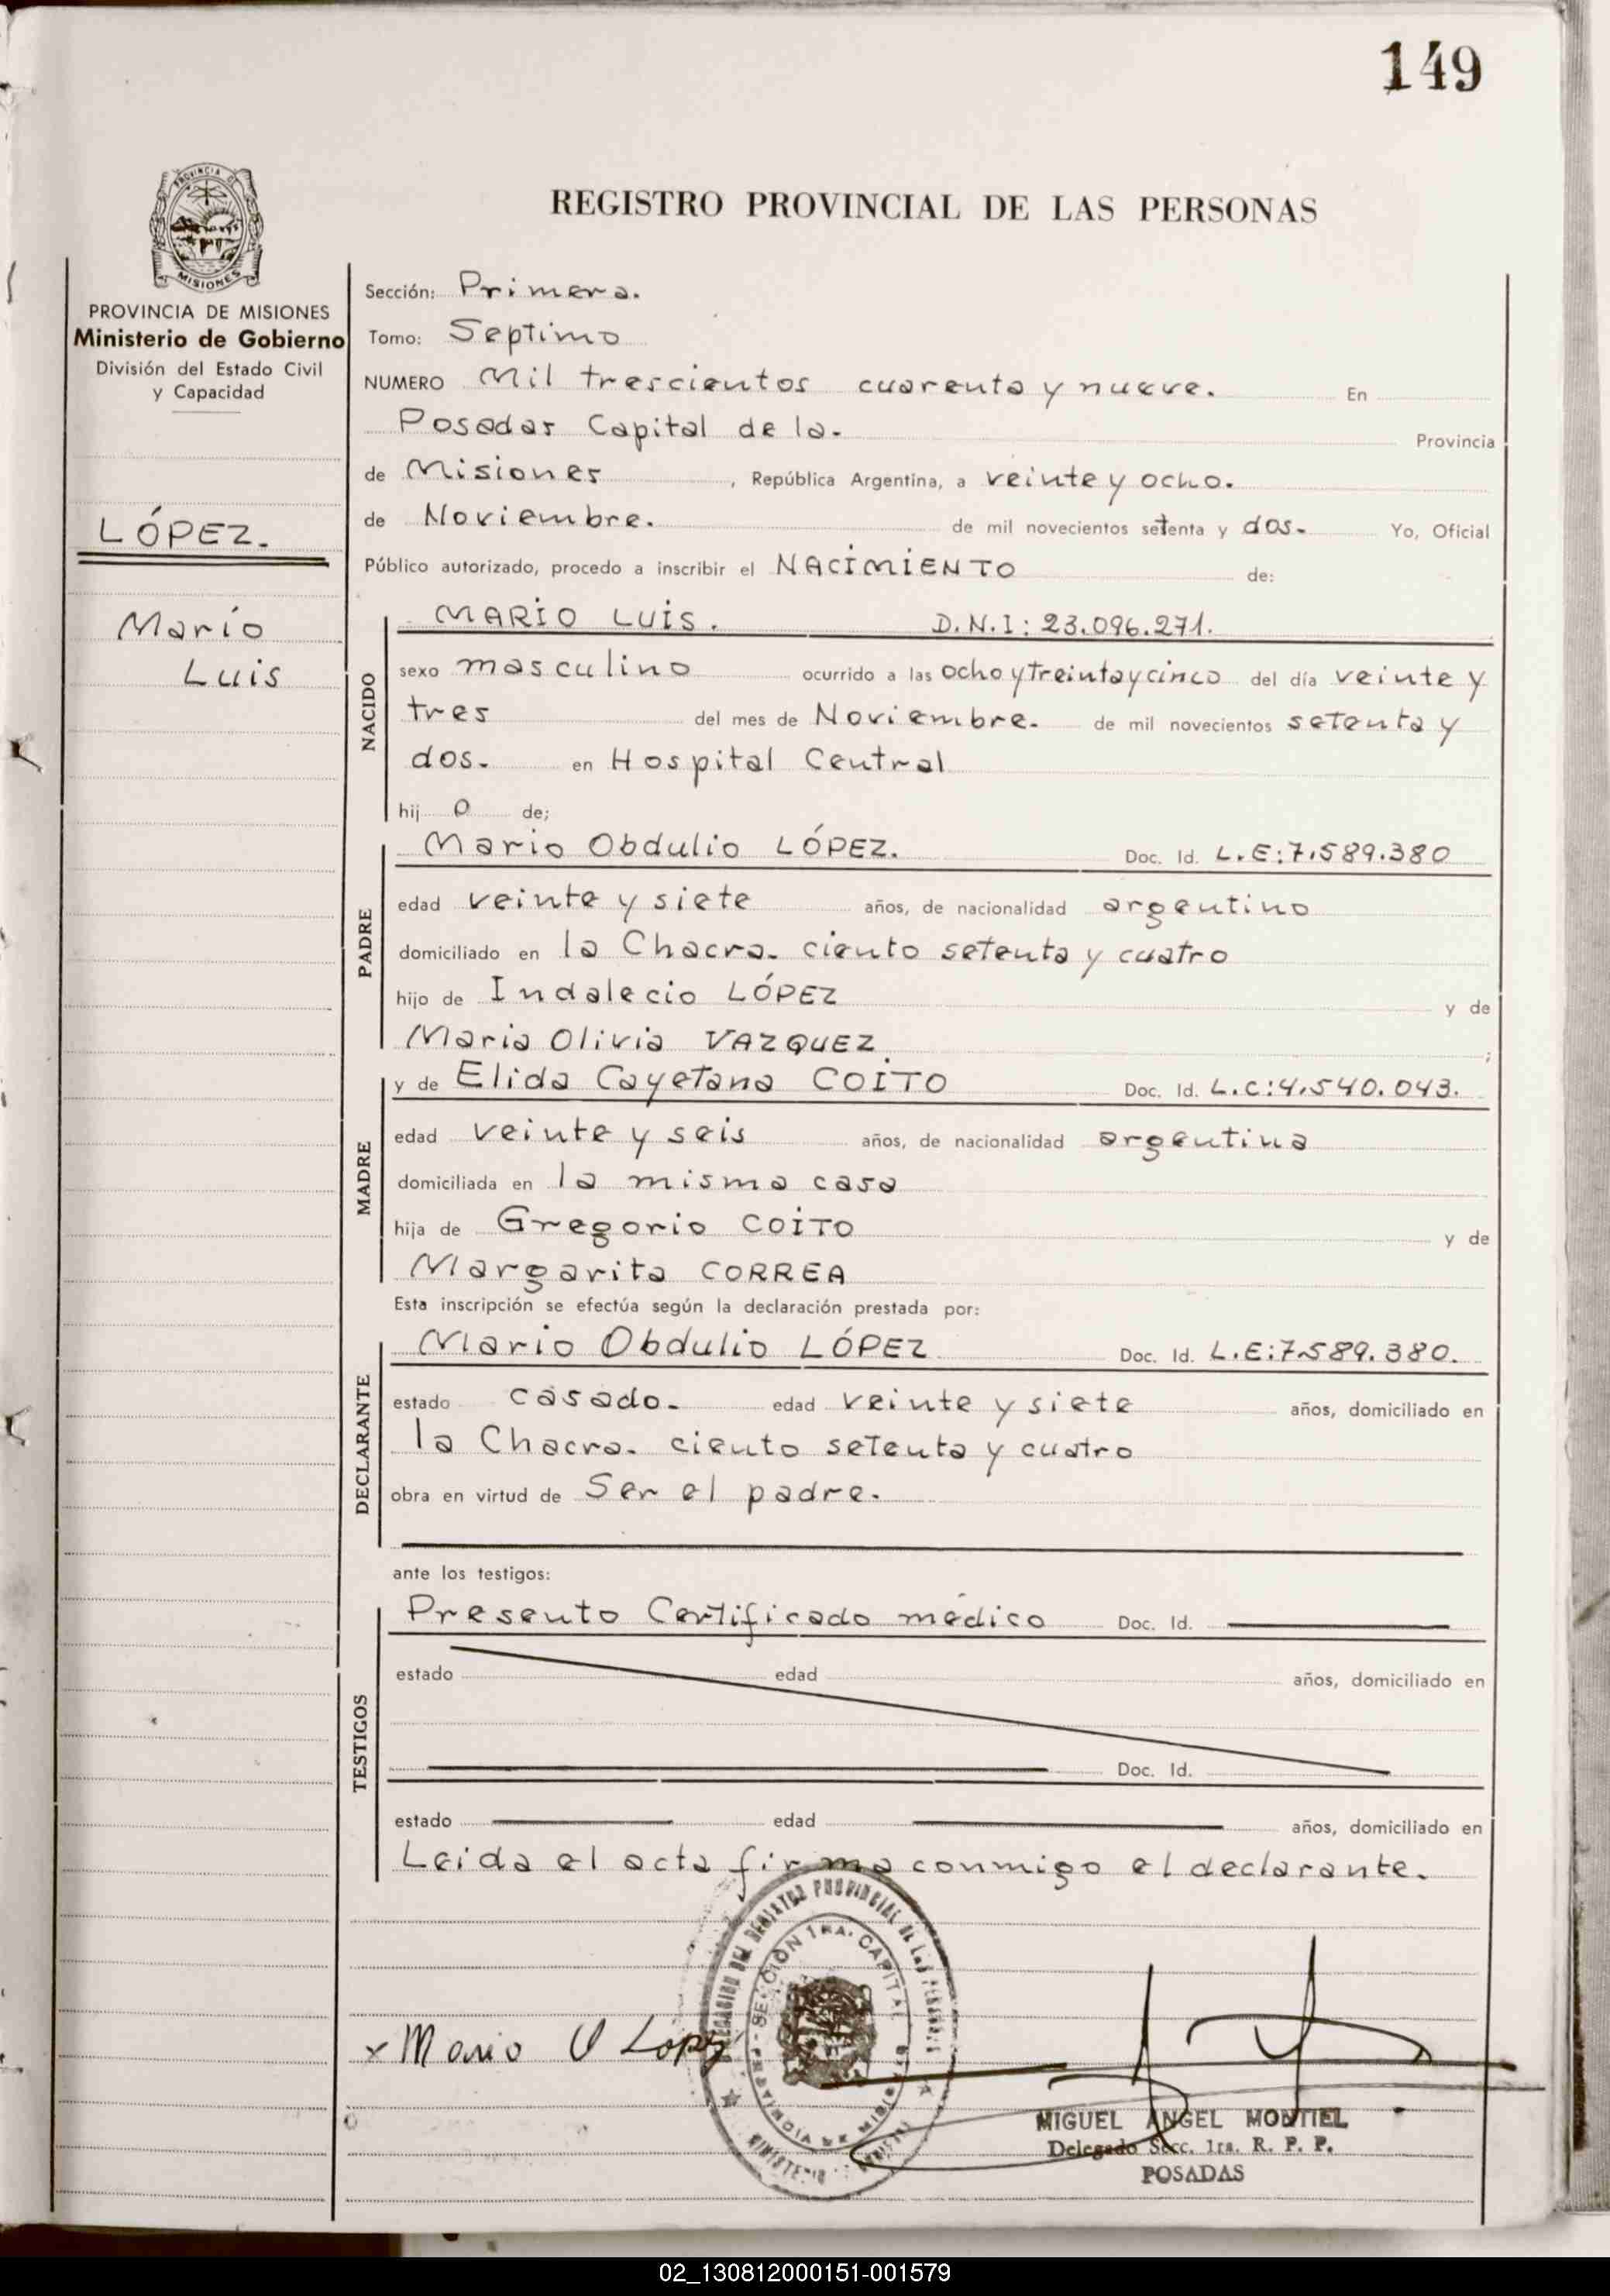 149
REGISTRO PROVINCIAL DE LAS PERSONAS
PROVINCIA DE MISIONES
Ministerio de Gobierno
División del Estado Civil
y Capacidad
LÓPEZ.
Mario
Luis
Sección: Primera.
Tomo: Septimo
NUMERO Mil trescientos cuarenta y nueve. En
Posadas Capital de la. Provincia
de Misiones, República Argentina, a veinte y ocho.
de Noviembre. de mil novecientos setenta y dos. Yo, Oficial
Público autorizado, procedo a inscribir el NACIMIENTO de:
NACIDO
MARIO LUIS. D.N.I: 23.096.271.
sexo masculino ocurrido a las ocho y treinta y cinco del día veinte y
tres del mes de Noviembre. de mil novecientos setenta y
dos. en Hospital Central
hij o de;
PADRE
Mario Obdulio LÓPEZ. Doc. Id. L.E:7.589.380
edad veinte y siete años, de nacionalidad argentino
domiciliado en la Chacra. ciento setenta y cuatro
hijo de Indalecio LÓPEZ y de
Maria Olivia VAZQUEZ ;
MADRE
y de Elida Cayetana COITO Doc. Id. L.C:4.540.043.
edad veinte y seis años, de nacionalidad argentina
domiciliada en la misma casa
hija de Gregorio COITO y de
Margarita CORREA
Esta inscripción se efectúa según la declaración prestada por:
DECLARANTE
Mario Obdulio LÓPEZ Doc. Id. L.E:7.589.380.
estado casado. edad veinte y siete años, domiciliado en
la Chacra. ciento setenta y cuatro
obra en virtud de Ser el padre.
ante los testigos:
TESTIGOS
Presento Certificado médico Doc. Id.
estado edad años, domiciliado en
Doc. Id.
estado edad años, domiciliado en
Leida el acta firma conmigo el declarante.
x Mario O Lopez
SECCIÓN 1RA. CAPITAL
MIGUEL ANGEL MONTIEL
Delegado Secc. 1ra. R. P. P.
POSADAS
02_130812000151-001579